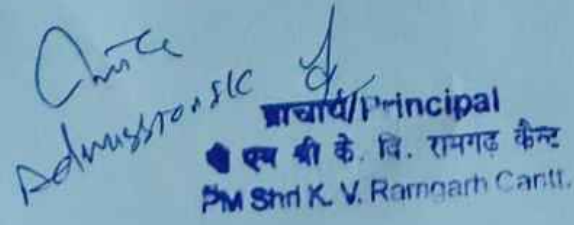 Admission I/C
प्राचार्य/Principal
पी एम श्री के. वि. रामगढ़ कैन्ट
PM Shri K. V. Ramgarh Cantt.